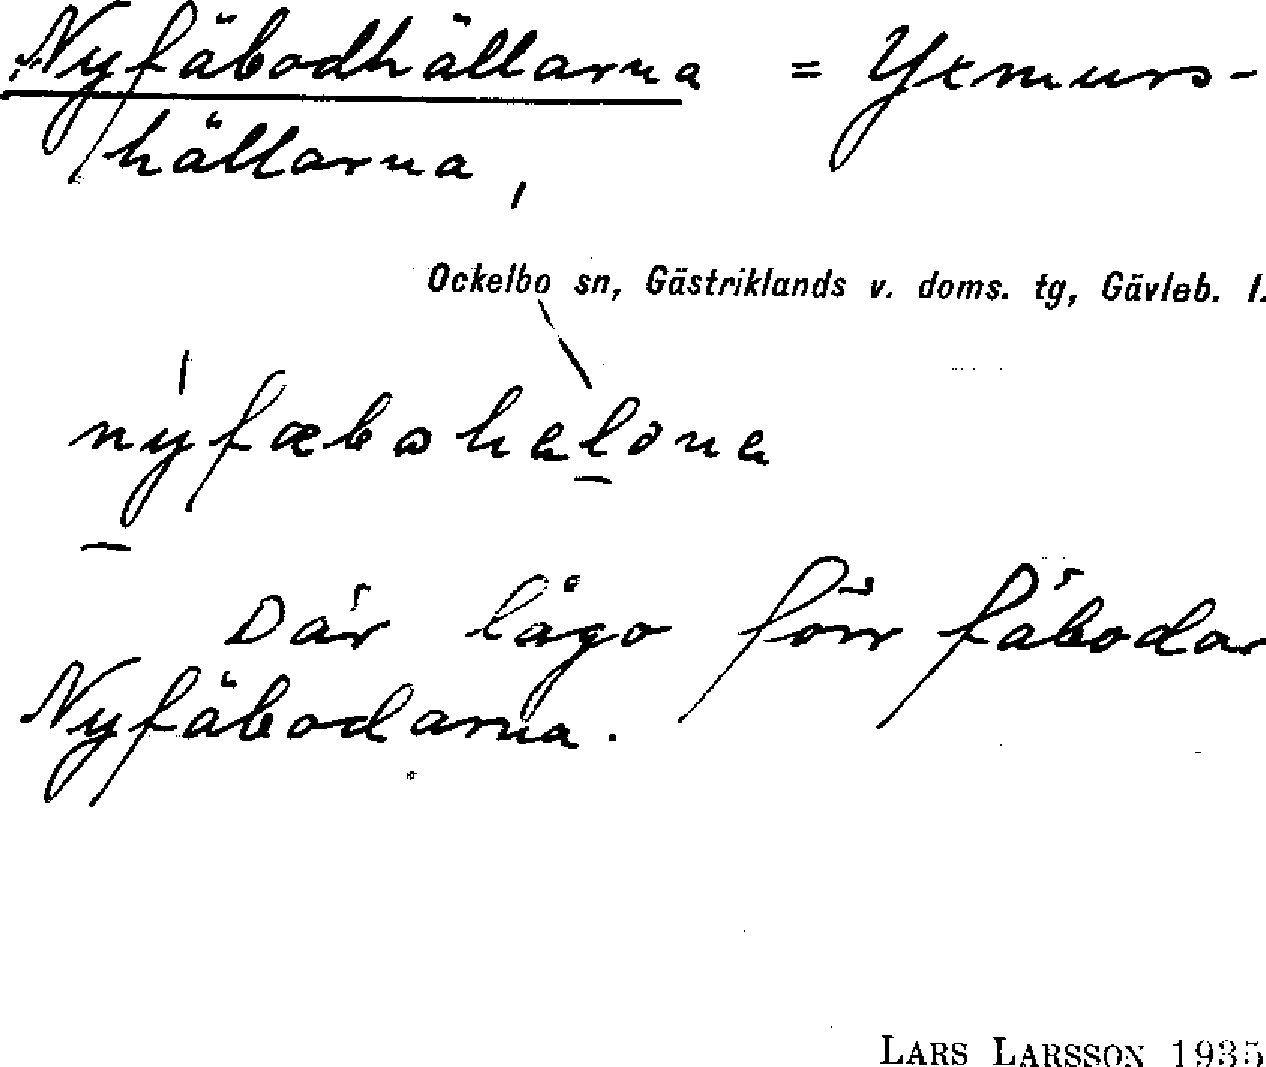 Nyfäbodhällarna = Ytmurs-
hällarna,
Ockelbo sn, Gästriklands v. doms. tg, Gävleb. l.
Där lågo förr fäbodar
Nyfäbodarna.
LARS LARSSON 1935